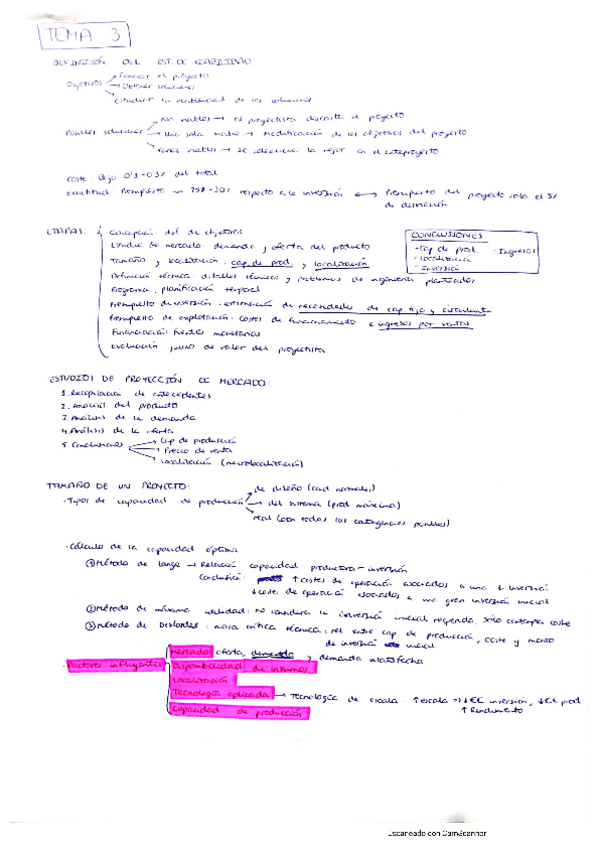 TEMA 3
DEFINICIÓN DEL EST. DE VIABILIDAD
Objetivos → Conocer el proyecto
→ Obtener soluciones
→ Estudiar la viabilidad de las soluciones
Posibles soluciones → No viables → El proyectista descarta el proyecto
→ Una sola viable → Modificación de los objetivos del proyecto
→ Varias viables → Se selecciona la mejor en el anteproyecto
Coste: Bajo 0'1-0'3% del total
Exactitud: Presupuesto un 25%-30% respecto a la inversión ↔ Presupuesto del proyecto solo el 5%
de desviación
ETAPAS:
Concepción: def. de objetivos
Estudio de mercado: demanda y oferta del producto
Tamaño y localización: cap. de prod. y localización
Definición técnica: detalles técnicos y problemas de ingeniería planteados
Programa: planificación temporal
Presupuesto de inversión: estimación de necesidades de cap. fijo y circulante
Presupuesto de explotación: costes de funcionamiento e ingresos por ventas
Financiación: fuentes monetarias
Evaluación: juicio de valor del proyectista
CONCLUSIONES
- Cap. de prod. - Ingresos
- Localización
- Inversión
ESTUDIOS DE PROYECCIÓN DE MERCADO:
1. Recopilación de antecedentes
2. Análisis del producto
3. Análisis de la demanda
4. Análisis de la oferta
5. Conclusiones → Cap. de producción
→ Precio de venta
→ Localización (macrolocalización)
TAMAÑO DE UN PROYECTO:
· Tipos de capacidad de producción → de diseño (cond. normales)
→ del sistema (prod. máxima)
→ real (con todas las contingencias posibles)
· Cálculo de la capacidad óptima
① Método de Lange → Relación capacidad productora - inversión
Conclusión: ↑ costes de operación asociados a una ↓ inversión
↓ costes de operación asociados a una gran inversión inicial
② Método de máxima utilidad: no considera la inversión inicial requerida, sólo contempla coste
③ Método de: masa crítica técnica: rel. entre cap. de producción, coste y monto
de inversión inicial
· Factores influyentes
Mercado: oferta, demanda y demanda insatisfecha
Disponibilidad de insumos
Localización
Tecnología aplicada → Tecnología de escala: ↑ escala ⇒ ↓€€ inversión, ↓€€ prod
↑ Rendimiento
Capacidad de producción
Escaneado con CamScanner